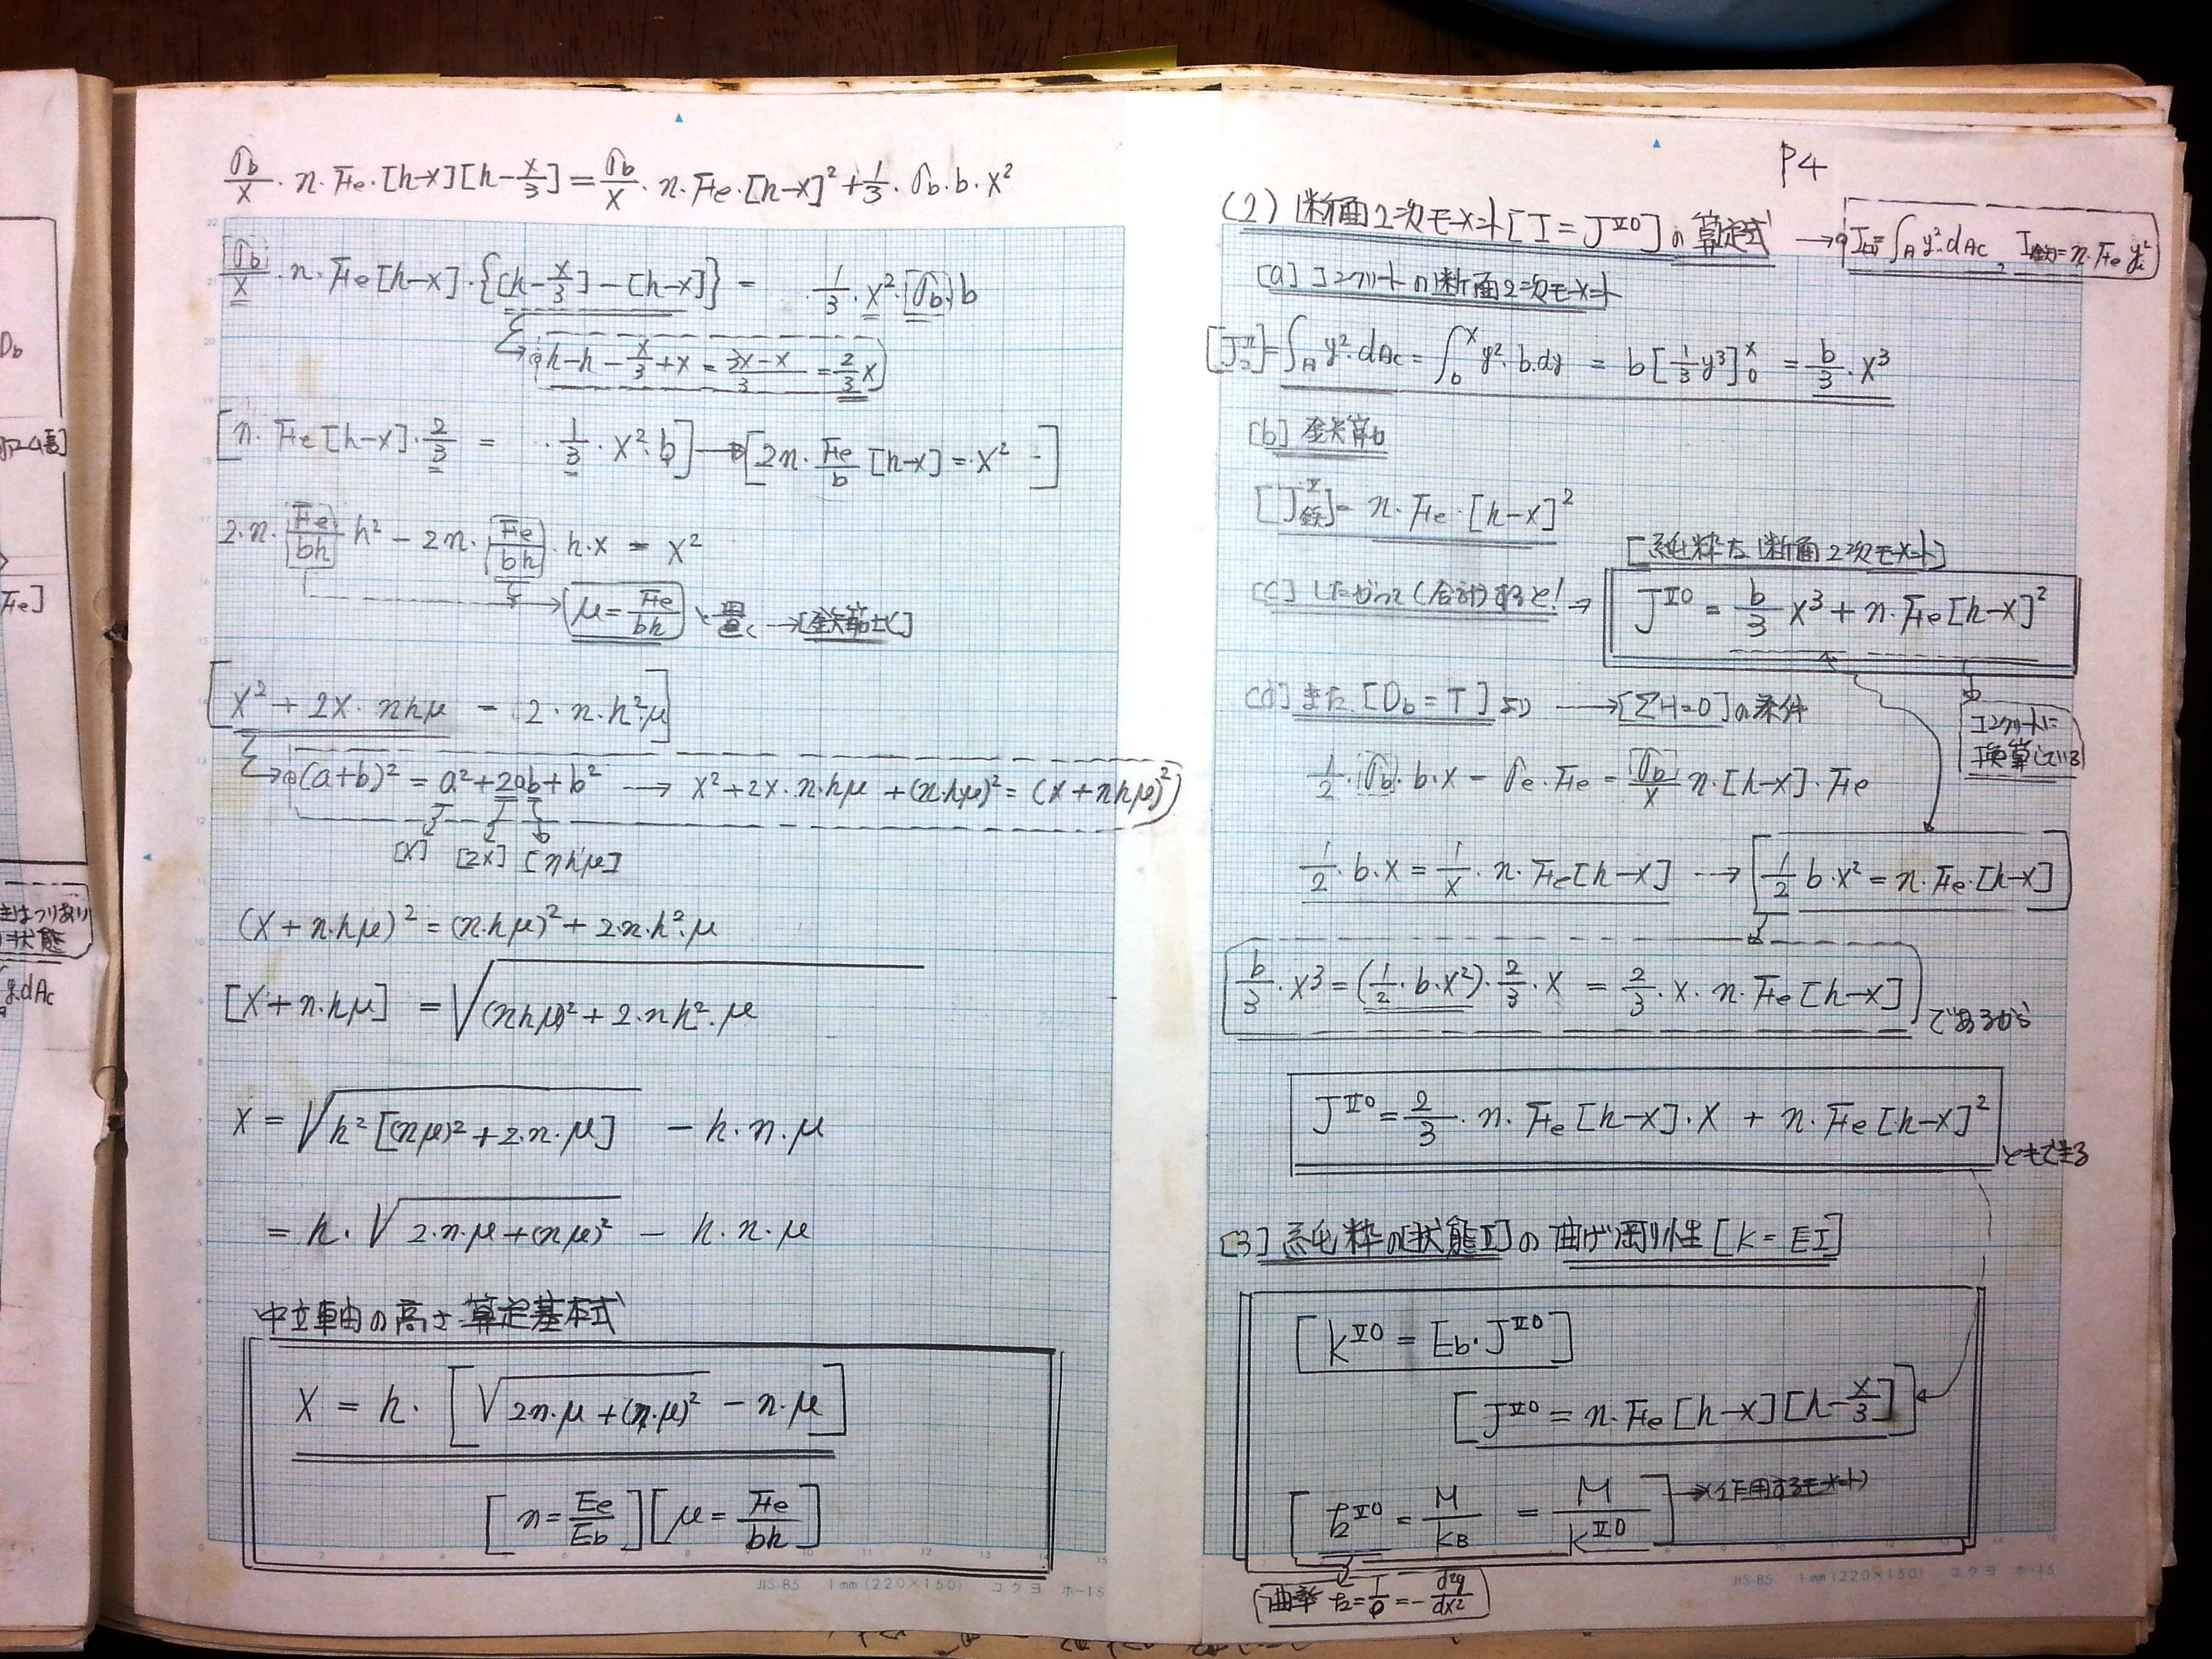 σb/x · n · Fe · [h-x][h-x/3] = σb/x · n · Fe · [h-x]² + 1/3 · σb · b · x²
σb/x · n · Fe[h-x] · {[h-x/3] - [h-x]} = 1/3 · x² · σb · b
h-h-x/3+x = 3x-x/3 = 2/3x
[n · Fe[h-x] · 2/3 = 1/3 · x² · b] → [2n · Fe/b [h-x] = x²]
2·n· Fe/bh h² - 2n · Fe/bh · h·x = x²
μ = Fe/bh と置く → [鉄筋比]
[x² + 2x · nhμ = 2·n·h²·μ]
(a+b)² = a²+2ab+b² → x²+2x·n·hμ+(n·hμ)² = (x+nhμ)²
[x] [2x] [nhμ]
(x+n·hμ)² = (n·hμ)² + 2·n·h²·μ
[x+n·hμ] = √(nhμ)²+2·nh²·μ
x = √h²[(nμ)²+2·n·μ] - h·n·μ
= h·√2·n·μ+(nμ)² - h·n·μ
中立軸の高さ算定基本式
x = h·[√2n·μ+(n·μ)² - n·μ]
[n = Ee/Eb][μ = Fe/bh]
JIS-B5 1mm(220×150) コクヨ ホ-15
P4
(2) 断面2次モーメント[I = J^ⅡO]の算定式 → I = ∫A y²·dAc, I鉄 = n·Fe yi²
[a] コンクリートの断面2次モーメント
[J^Ⅱ] = ∫A y²·dAc = ∫b^x y²·b·dy = b[1/3 y³]0^x = b/3 · x³
[b] 鉄筋
[J^Ⅱ鉄] = n·Fe·[h-x]²
[純粋な断面2次モーメント]
[c] したがって(合計)すると! → J^ⅡO = b/3 x³ + n·Fe[h-x]²
[d] また [Db = T]より → [ΣH=0]の条件
コンクリートに
換算している
1/2 · σb · b·x = σe·Fe = σb/x n·[h-x]·Fe
1/2 · b·x = 1/x · n·Fe[h-x] → [1/2 b·x² = n·Fe·[h-x]]
b/3 · x³ = (1/2 · b·x²) · 2/3 · x = 2/3 · x · n·Fe[h-x] であるから
J^ⅡO = 2/3 · n·Fe[h-x]·x + n·Fe[h-x]² ともできる
[3] 純粋の[状態Ⅱ]の曲げ剛性 [k = EI]
[k^ⅡO = Eb·J^ⅡO]
[J^ⅡO = n·Fe[h-x][h-x/3]]
[k^ⅡO = M/kB = M/k^ⅡO] → (作用するモーメント)
曲率 k = 1/ρ = -d²y/dx²
JIS-B5 1mm(220×150) コクヨ ホ-15
Db
Fe]
状態
y·dAc